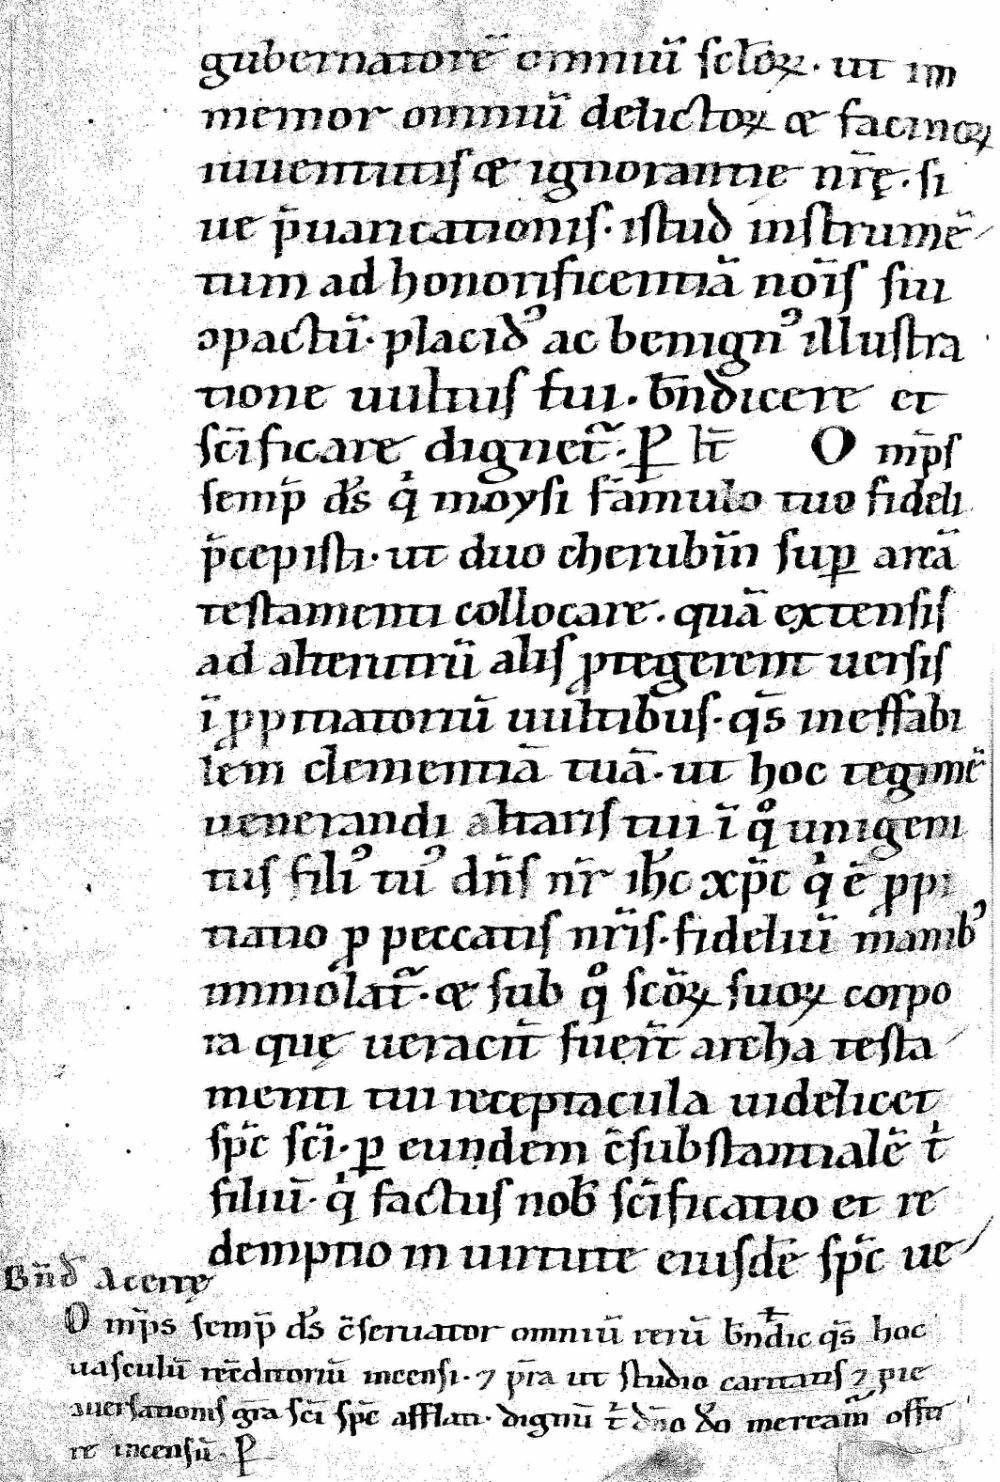 gubernatorē omniū sc̄loꝝ. ut im
memor omniū delictoꝝ & facinoꝝ
iuuentutis & ignorantie nr̄ę. si
ue p̄uaricationis. istud instrumē
tum ad honorificentiā noīs sui
ꝯpactū. placidꝰ ac benignꝰ illustra
tione uultus sui. bn̄dicere et
sc̄ificare dignet᷑. P lt̄ O mp̄s
semp̄ ds̄ qͥ moysi famulo tuo fideli
p̄cepisti. ut duo cherubin̄ sup̱ arcā
testamenti collocare. quā extensis
ad alterutrū alis ꝓtegerent uersis
ī ꝓpitiatoriū uultibus. qs̄ ineffabi
lem clementiā tuā. ut hoc tegimē
uenerandi altaris tui ī qͦ unigeni
tus filiꝰ tuꝰ dn̄s nr̄ ihc̄ xp̄c qͥ ē ꝓpi
tiatio ꝓ peccatis nr̄is. fideliū manibꝰ
immolat᷑. & sub qͦ sc̄oꝝ suoꝝ corpo
ra quę ueracit̄ fuer̄t archa testa
menti tui receptacula uidelicet
spc̄ sc̄i. ꝑ eundem c̄substantialē tͥ
filiū. qͥ factus nob̄ sc̄ificatio et re
demptio in uirtute eiusdē spc̄ ue
Bn̄d̄ Acerrę
O mp̄s semp̄ ds̄ c̄seruator omniū rerū bn̄dic qs̄ hoc
uasculū rec̄ditoriū incensi. ⁊ p̄ra ut studio caritatis ⁊ pie
ꝯuersationis gr̄a sc̄i spc̄ afflati. dignū tͥ dn̄o dō meream᷑ offer
re incensū. P